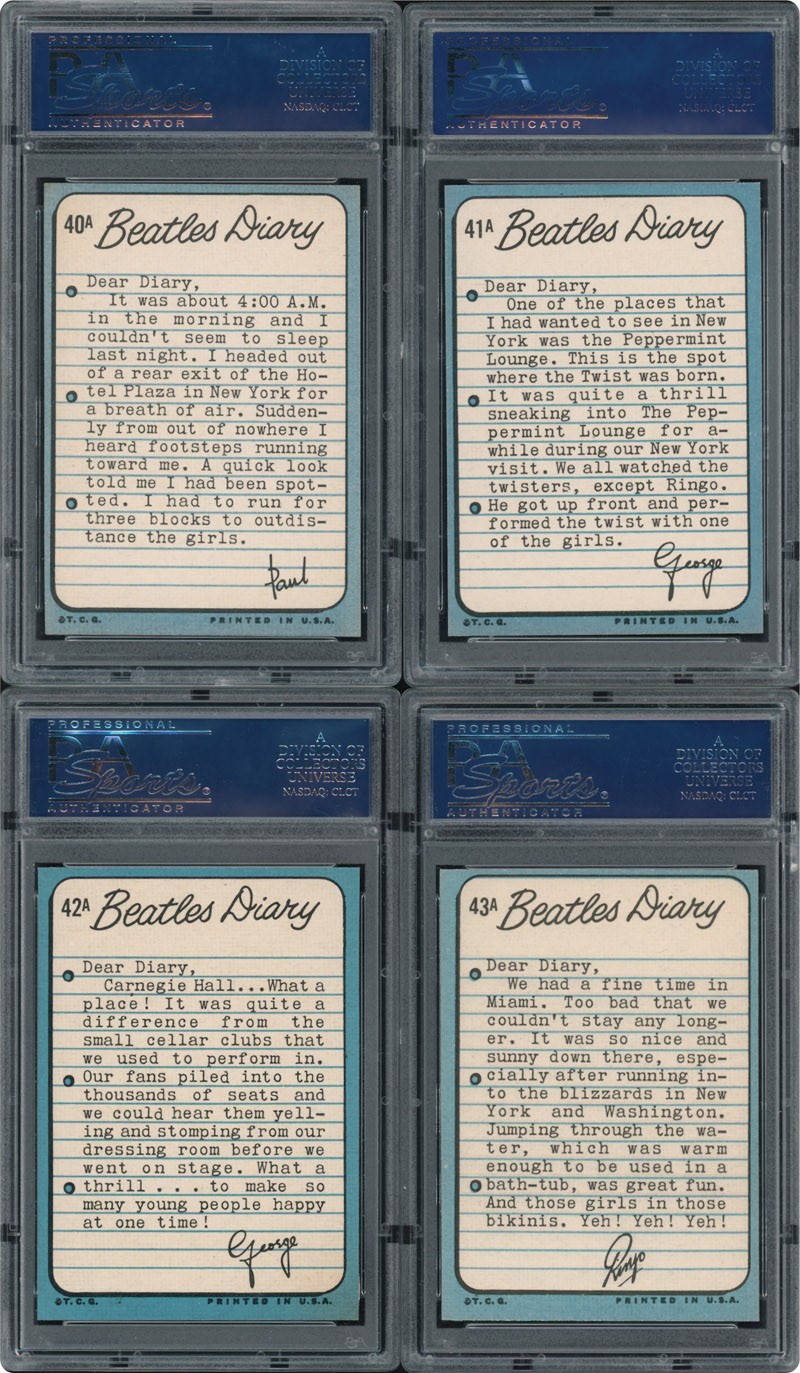 PROFESSIONAL
PSA
Sports®
AUTHENTICATOR
A
DIVISION OF
COLLECTORS
UNIVERSE
NASDAQ: CLCT
40A Beatles Diary
Dear Diary,
It was about 4:00 A.M.
in the morning and I
couldn't seem to sleep
last night. I headed out
of a rear exit of the Ho-
tel Plaza in New York for
a breath of air. Sudden-
ly from out of nowhere I
heard footsteps running
toward me. A quick look
told me I had been spot-
ted. I had to run for
three blocks to outdis-
tance the girls.
Paul
©T.C.G. PRINTED IN U.S.A.
PROFESSIONAL
PSA
Sports®
AUTHENTICATOR
A
DIVISION OF
COLLECTORS
UNIVERSE
NASDAQ: CLCT
41A Beatles Diary
Dear Diary,
One of the places that
I had wanted to see in New
York was the Peppermint
Lounge. This is the spot
where the Twist was born.
It was quite a thrill
sneaking into The Pep-
permint Lounge for a-
while during our New York
visit. We all watched the
twisters, except Ringo.
He got up front and per-
formed the twist with one
of the girls.
George
©T.C.G. PRINTED IN U.S.A.
PROFESSIONAL
PSA
Sports®
AUTHENTICATOR
A
DIVISION OF
COLLECTORS
UNIVERSE
NASDAQ: CLCT
42A Beatles Diary
Dear Diary,
Carnegie Hall...What a
place! It was quite a
difference from the
small cellar clubs that
we used to perform in.
Our fans piled into the
thousands of seats and
we could hear them yell-
ing and stomping from our
dressing room before we
went on stage. What a
thrill . . . to make so
many young people happy
at one time!
George
©T.C.G. PRINTED IN U.S.A.
PROFESSIONAL
PSA
Sports®
AUTHENTICATOR
A
DIVISION OF
COLLECTORS
UNIVERSE
NASDAQ: CLCT
43A Beatles Diary
Dear Diary,
We had a fine time in
Miami. Too bad that we
couldn't stay any long-
er. It was so nice and
sunny down there, espe-
cially after running in-
to the blizzards in New
York and Washington.
Jumping through the wa-
ter, which was warm
enough to be used in a
bath-tub, was great fun.
And those girls in those
bikinis. Yeh! Yeh! Yeh!
Ringo
©T.C.G. PRINTED IN U.S.A.